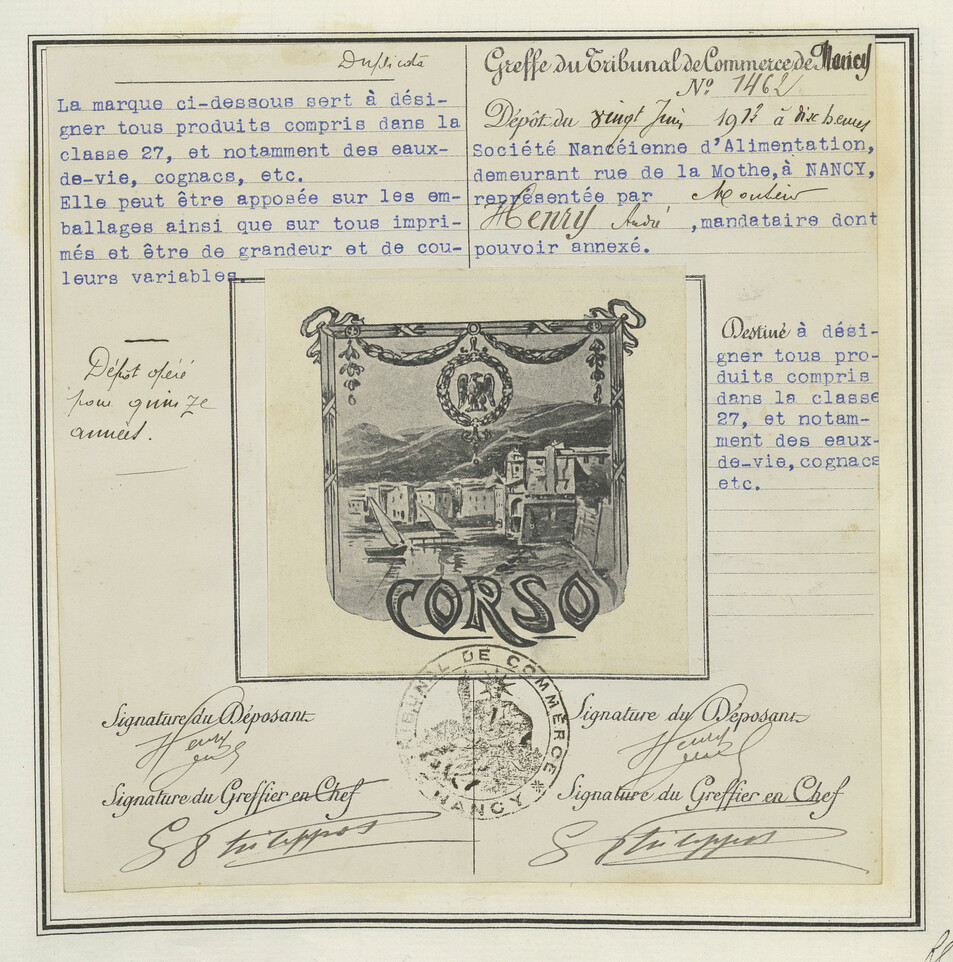 Duplicata
La marque ci-dessous sert à dési-
gner tous produits compris dans la
classe 27, et notamment des eaux-
de-vie, cognacs, etc.
Elle peut être apposée sur les em-
ballages ainsi que sur tous impri-
més et être de grandeur et de cou-
leurs variables.
Dépôt opéré
pour quinze
années.
Greffe du Tribunal de Commerce de Nancy
No 1462
Dépôt du vingt Juin 1913 à dix heures
Société Nancéienne d'Alimentation,
demeurant rue de la Mothe, à NANCY,
représentée par Monsieur
Henry André, mandataire dont
pouvoir annexé.
Destiné à dési-
gner tous pro-
duits compris
dans la classe
27, et notam-
ment des eaux-
de-vie, cognacs
etc.
CORSO
TRIBUNAL DE COMMERCE
NANCY
Signature du Déposant
Henry
Signature du Greffier en Chef
Signature du Déposant
Henry
Signature du Greffier en Chef